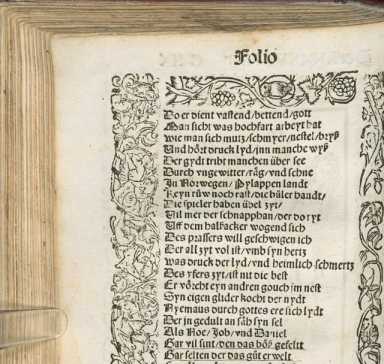 Folio
Do er dient vastend/bettend/gott
Man sicht was hochfart arbeyt hat
Wie man sich mutz/schmyer/nestel/bryß
Und hört druck lyd/inn manche wyß
Der gydt tribt manchen über see
Durch ungewitter/räg/und schne
In Norwegen/Pylappen landt
Keyn rüw noch rast/die büler handt/
Die spieler haben übel zyt/
Vil mer der schnapphan/der do ryt
Uff dem halßacker wogend sich
Des prassers will geschwigen ich
Der all zyt vol ist/umb syn hertz
was druck der lyd/und heimlich schmertz
Des yfers zyt/ist nit die best
Er vörcht eyn andren gouch im nest
Syn eigen glider kocht der nydt
Nyemans durch gottes ere sich lydt
Der in gedult an säh syn sel
Als Noe/Job/und Daniel
Gar vil sint/den das böß gefellt
Gar selten der das güt erwelt